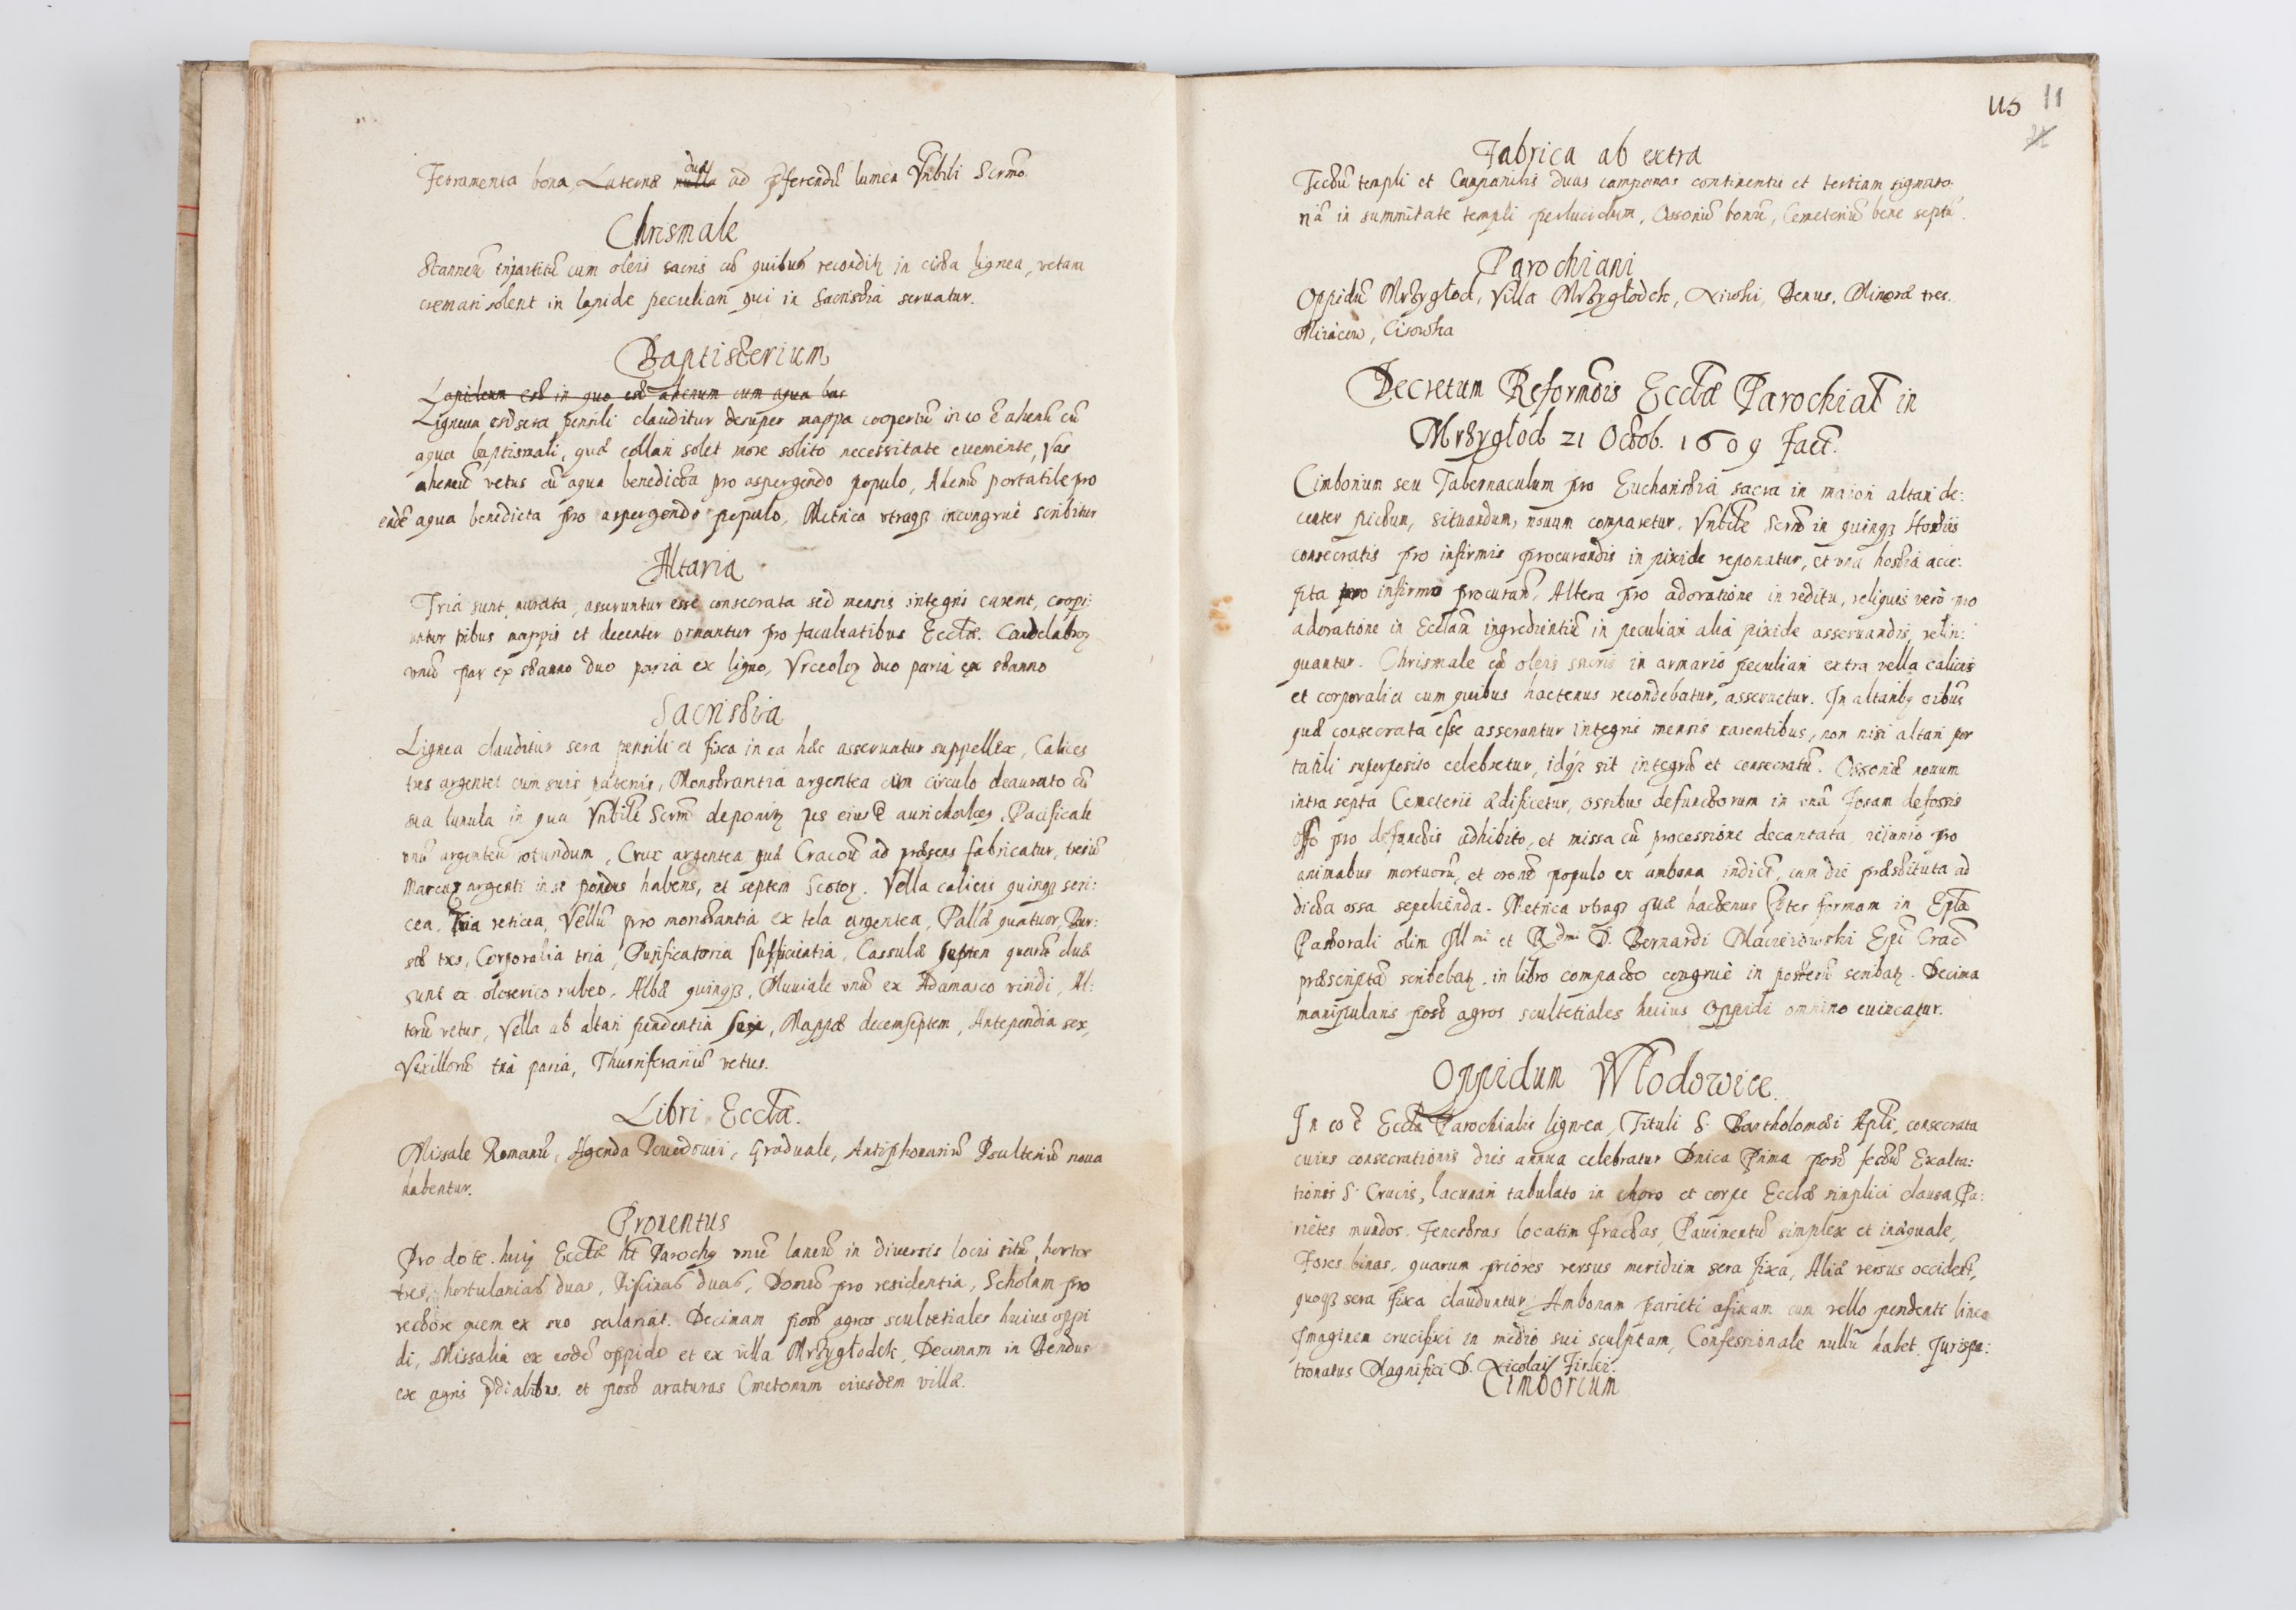 Ferramenta bona, Laternæ nulla duæ ad p̱ferendũ lumen Vñbili Scrmõ
Chrismale
Stanneũ tripartitũ cum oleis sacris cũ quibus recondit̃ in cista lignea, vetara
cremari solent in lapide peculiari qui in sacristia seruatur.
Baptisterium
Lapideum est in quo est ahenum cum aqua bap
Ligneum est sera pensili clauditur desuper mappa coopertũ in eo ẽ ahenũ cũ
aqua baptismali, quæ collari solet more solito necessitate eueniente, Vas
aheneũ vetus cũ aqua benedicta pro aspergendo populo, Ahenũ portatile pro
endẽ aqua benedicta pro aspergendo populo, Metrica vtraqȝ incongruè scribitur
Altaria
Tria sunt murata, asseruntur esse consecrata sed mensis integris carent, coopi:
untur tribus mappis et decenter ornantur pro facultatibus Ecclæ. Candelabroꝝ
vnũ par ex stanno duo paria ex ligno, Vrceoloꝝ duo paria ex stanno
Sacristia
Lignea clauditur sera pensili et fixa in ea hæc asseruntur suppellex, Calices
tres argentei cum suis patenis, Monstrantia argentea cum circulo deaurato cũ
sua lunula in qua Vñbile Scrm̃ deponit̃ pes eius ẽ aurichalceꝯ, Pacificale
vnũ argenteũ rotundum, Crux argentea quæ Cracouiæ ad præsens fabricatur, triũ
Marcaꝝ argenti in se pondus habens, et septem Scotoꝝ. Vella calicis quinqȝ seri:
cea, tria reticea, Vellũ pro monstrantia ex tela argentea, Pallæ quatuor, Bur:
sæ tres, Corporalia tria, Purificatoria sufficientia, Cassulæ septem quarũ duæ
sunt ex oloserico rubeo, Albæ quinqȝ, Pluuiale vnũ ex Adamasco viridi, Al:
terũ vetus, Vella ab altari pendentia sex, Mappæ decemseptem, Antependia sex,
Vexillorũ tria paria, Thurriferariũ vetus.
Libri Ecclæ.
Missale Romanũ, Agenda Poucdouij, Graduale, Antiphonariũ Psalteriũ noua
habentur.
Prouentus
Pro dote huiꝯ Ecclæ ht̃ Parochꝯ vnũ laneũ in diuersis locis sitũ, hortos
tres, hortulanias duas, Piscinas duas, Domũ pro residentia, Scholam pro
rectore quem ex suo salariat. Decimam post agros scultetiales huius oppi
di, Missalia ex eodẽ oppido et ex villa Mrzygłodek, Decimam in Bendus
ex agris p̱dialibus et post araturas Cmetonum eiusdem villæ.
115 11
Fabrica ab extra
Tectũ templi et Campanilis duas campanas continentis et tertiam signato:
riã in summitate templi perlucidum, Ossoriũ bonũ, Cemeteriũ bene septũ.
Parochiani
Oppidũ Mrzygłod, Villa Mrzygłodek, Niwki, Benus, Mineræ tres.
Miracow, Cisowka
Decretum Reformõis Ecclæ Parochial̃ in
Mrzygłod 21 Octob. 1609 fact̃.
Cimborium seu Tabernaculum pro Eucharistia sacra in maiori altari de:
center pictum, situandum, nouum comparetur. Vñbile Scrm̃ in quinqȝ Hostiis
consecratis pro infirmis procurandis in pixide reponatur, et vna hostia acce:
pta pro infirmo procurand̃, Altera pro adoratione in reditu, reliquis verò pro
adoratione in Ecclam ingredientiũ in peculiari alia pixide asseruandis, relin:
quantur. Chrismale cũ oleis sacris in armario peculiari extra vella calicis
et corporalia cum quibus hactenus recondebatur, asseruetur. In altaribꝯ oĩbus
quæ consecrata esse asseruntur integris mensis carentibus, non nisi altari por
tatili superposito celebretur, idqȝ sit integrũ et consecratũ. Ossoriũ nouum
intra septa Cemeterii ædificetur, ossibus defunctorum in vnã fossam defossis
off̃o pro defunctis adhibito, et missa cũ processione decantata, ieiunio pro
animabus mortuorũ, et orõne populo ex ambona indict̃, cum die præstituta ad
dicta ossa sepelienda. Metrica vtraqȝ quæ hactenus p̱ter formam in Epl̃a
Pastorali olim Ill mi et R dmi D. Bernardi Maciciowski Epĩ Crac̃
præscriptã scribebat̃, in libro compacto congruè in posterũ scribat̃. Decima
manipularis post agros scultetiales huius oppidi omnino euincatur.
Oppidum Włodowice
In eo ẽ Eccla Parochialis lignea, Tituli S. Bartholomæi Apl̃i, consecrata
cuius consecrationis dies annua celebratur Dñica Prima post festũ Exalta:
tionis S. Crucis, lacunari tabulato in choro et corpe Ecclæ simplici clausa, Pa:
rietes mundos, Fenestras locatim fractas, Pauimentũ simplex et inæquale,
Fores binas, quarum priores versus meridiem sera fixa, Aliæ versus occident̃,
quoqȝ sera fixa clauduntur, Ambonam parieti afixam cum vello pendenti lineo
Imaginem crucifixi in medio sui sculptam, Confessionale nullũ habet. Jurispa:
tronatus Magnifici D. Nicolai Firlei.
Cimborium